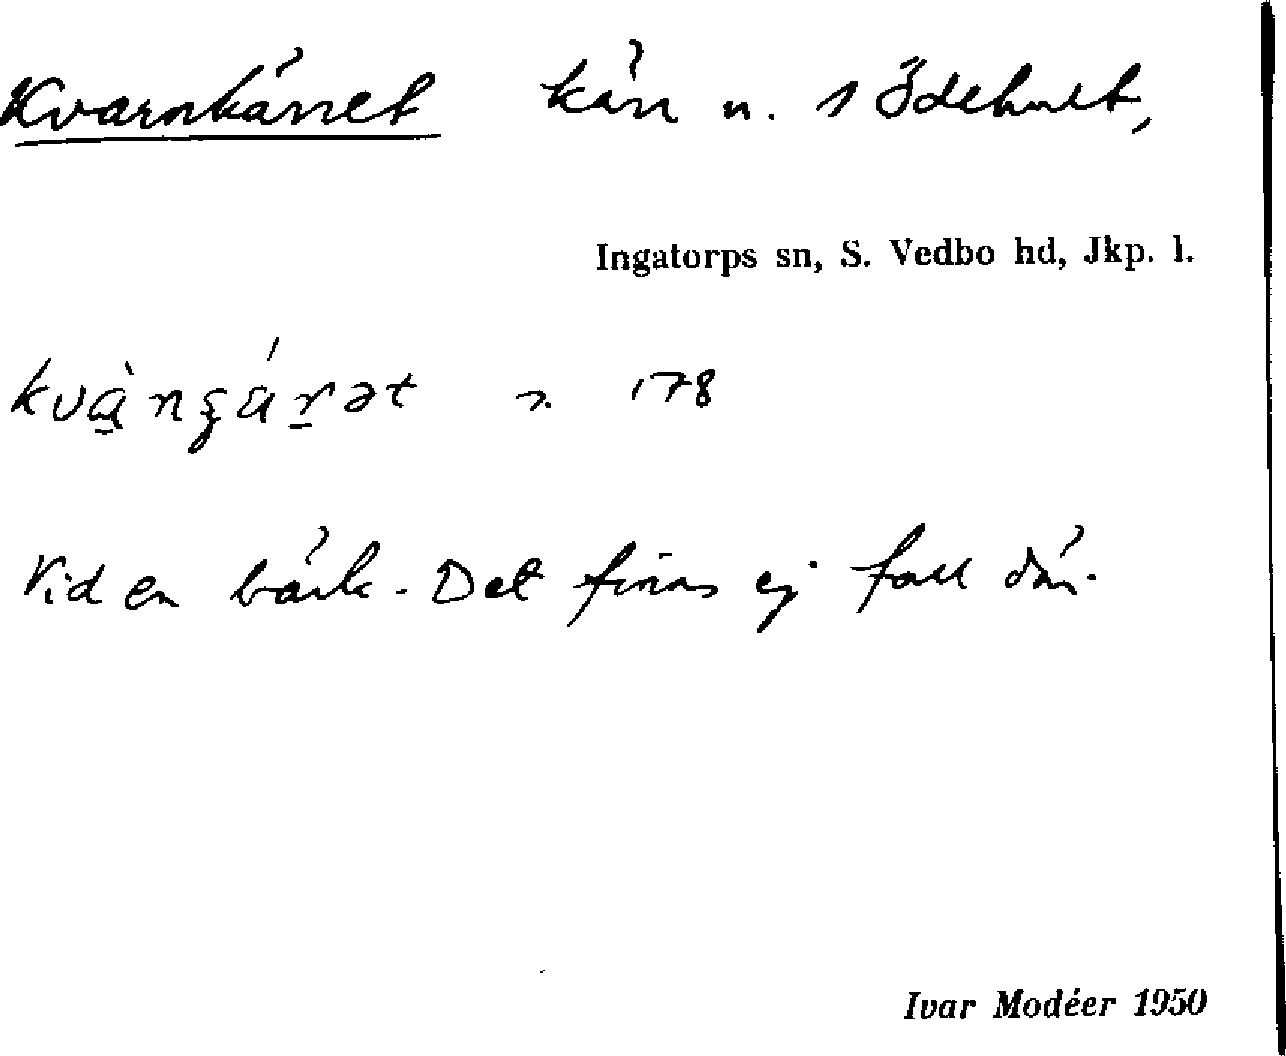 Kvarnkärret kärr n. 1 Ödehult,
Ingatorps sn, S. Vedbo hd, Jkp. l.
178
Vid en bäck. Det finns ej fall där.
Ivar Modéer 1950